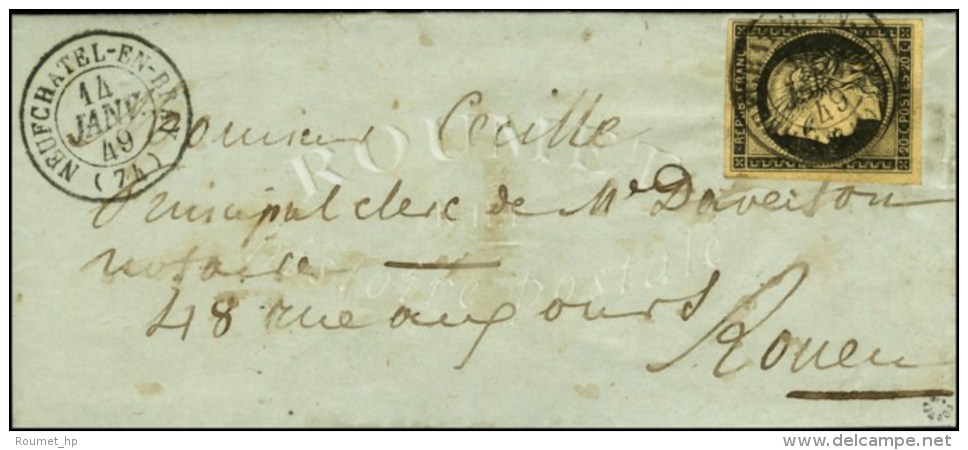 NEUFCHATEL-EN-BRAY
14
JANV.
49
(74)
REPUB. FRANC.
20 C. POSTES 20 C.
49
Monsieur Cecille
Principal clerc de Me Daveiton
notaire
48 rue aux ours
Rouen
ROUMET
Histoire postale
Roumet_hp
www.delcampe.net